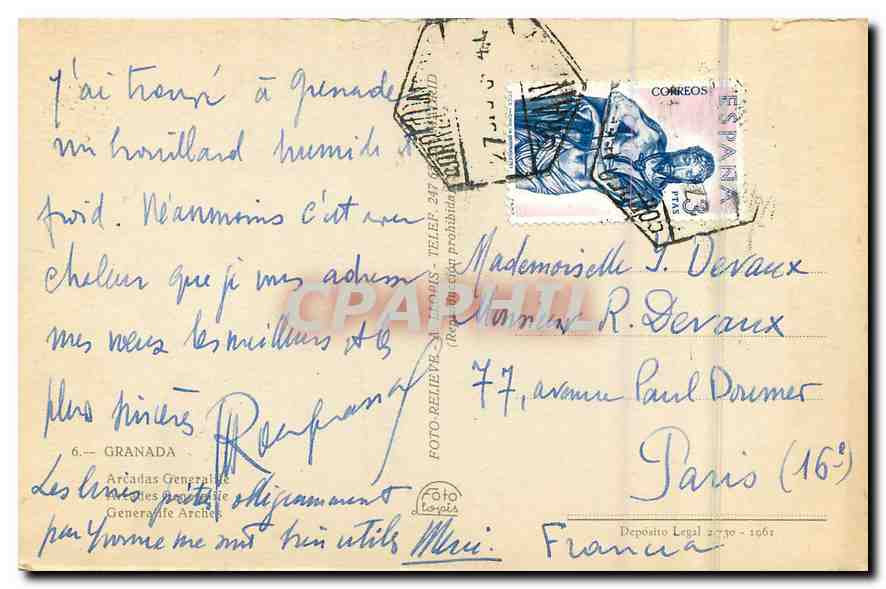 J'ai trouvé à Grenade
un brouillard humide et
froid. Néanmoins c'est avec
chaleur que je vous adresse
mes vœux les meilleurs et les
plus sincères
6.— GRANADA
Arcadas Generalife
Arcades Generalife
Generalife Arches
Les livres prêtés obligeamment
par Yvonne me sont bien utiles Merci.
FOTO-RELIEVE - M. LLOPIS - TELEF. 247 6 MADRID
(Reproducción prohibida)
Foto
Llopis
CORREOS
ESPAÑA
3
PTAS
CORREO
27
CORREO
Mademoiselle J. Devaux
Monsieur R. Devaux
77, avenue Paul Doumer
Paris (16e)
Francia
Depósito Legal 2.730 - 1961
CPAPHIL